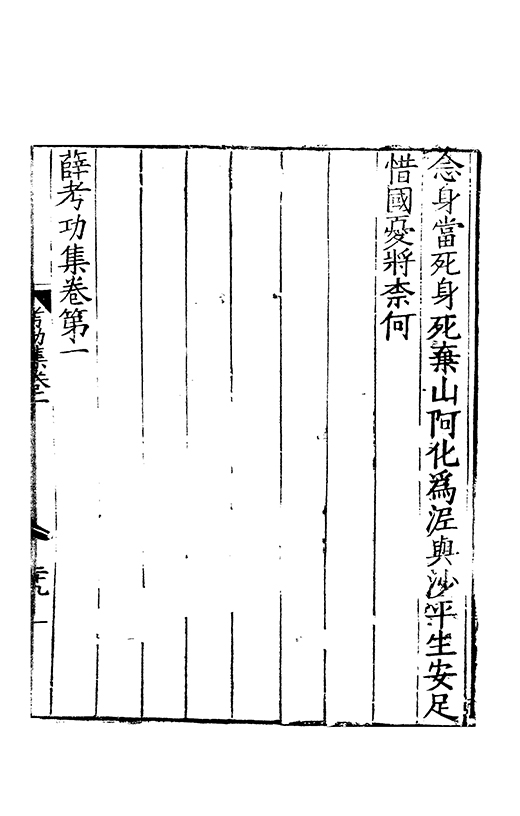 念身當死身死棄山阿化爲泥與沙平生安足
惜國憂將柰何
薛考功集卷第一
考功集卷一